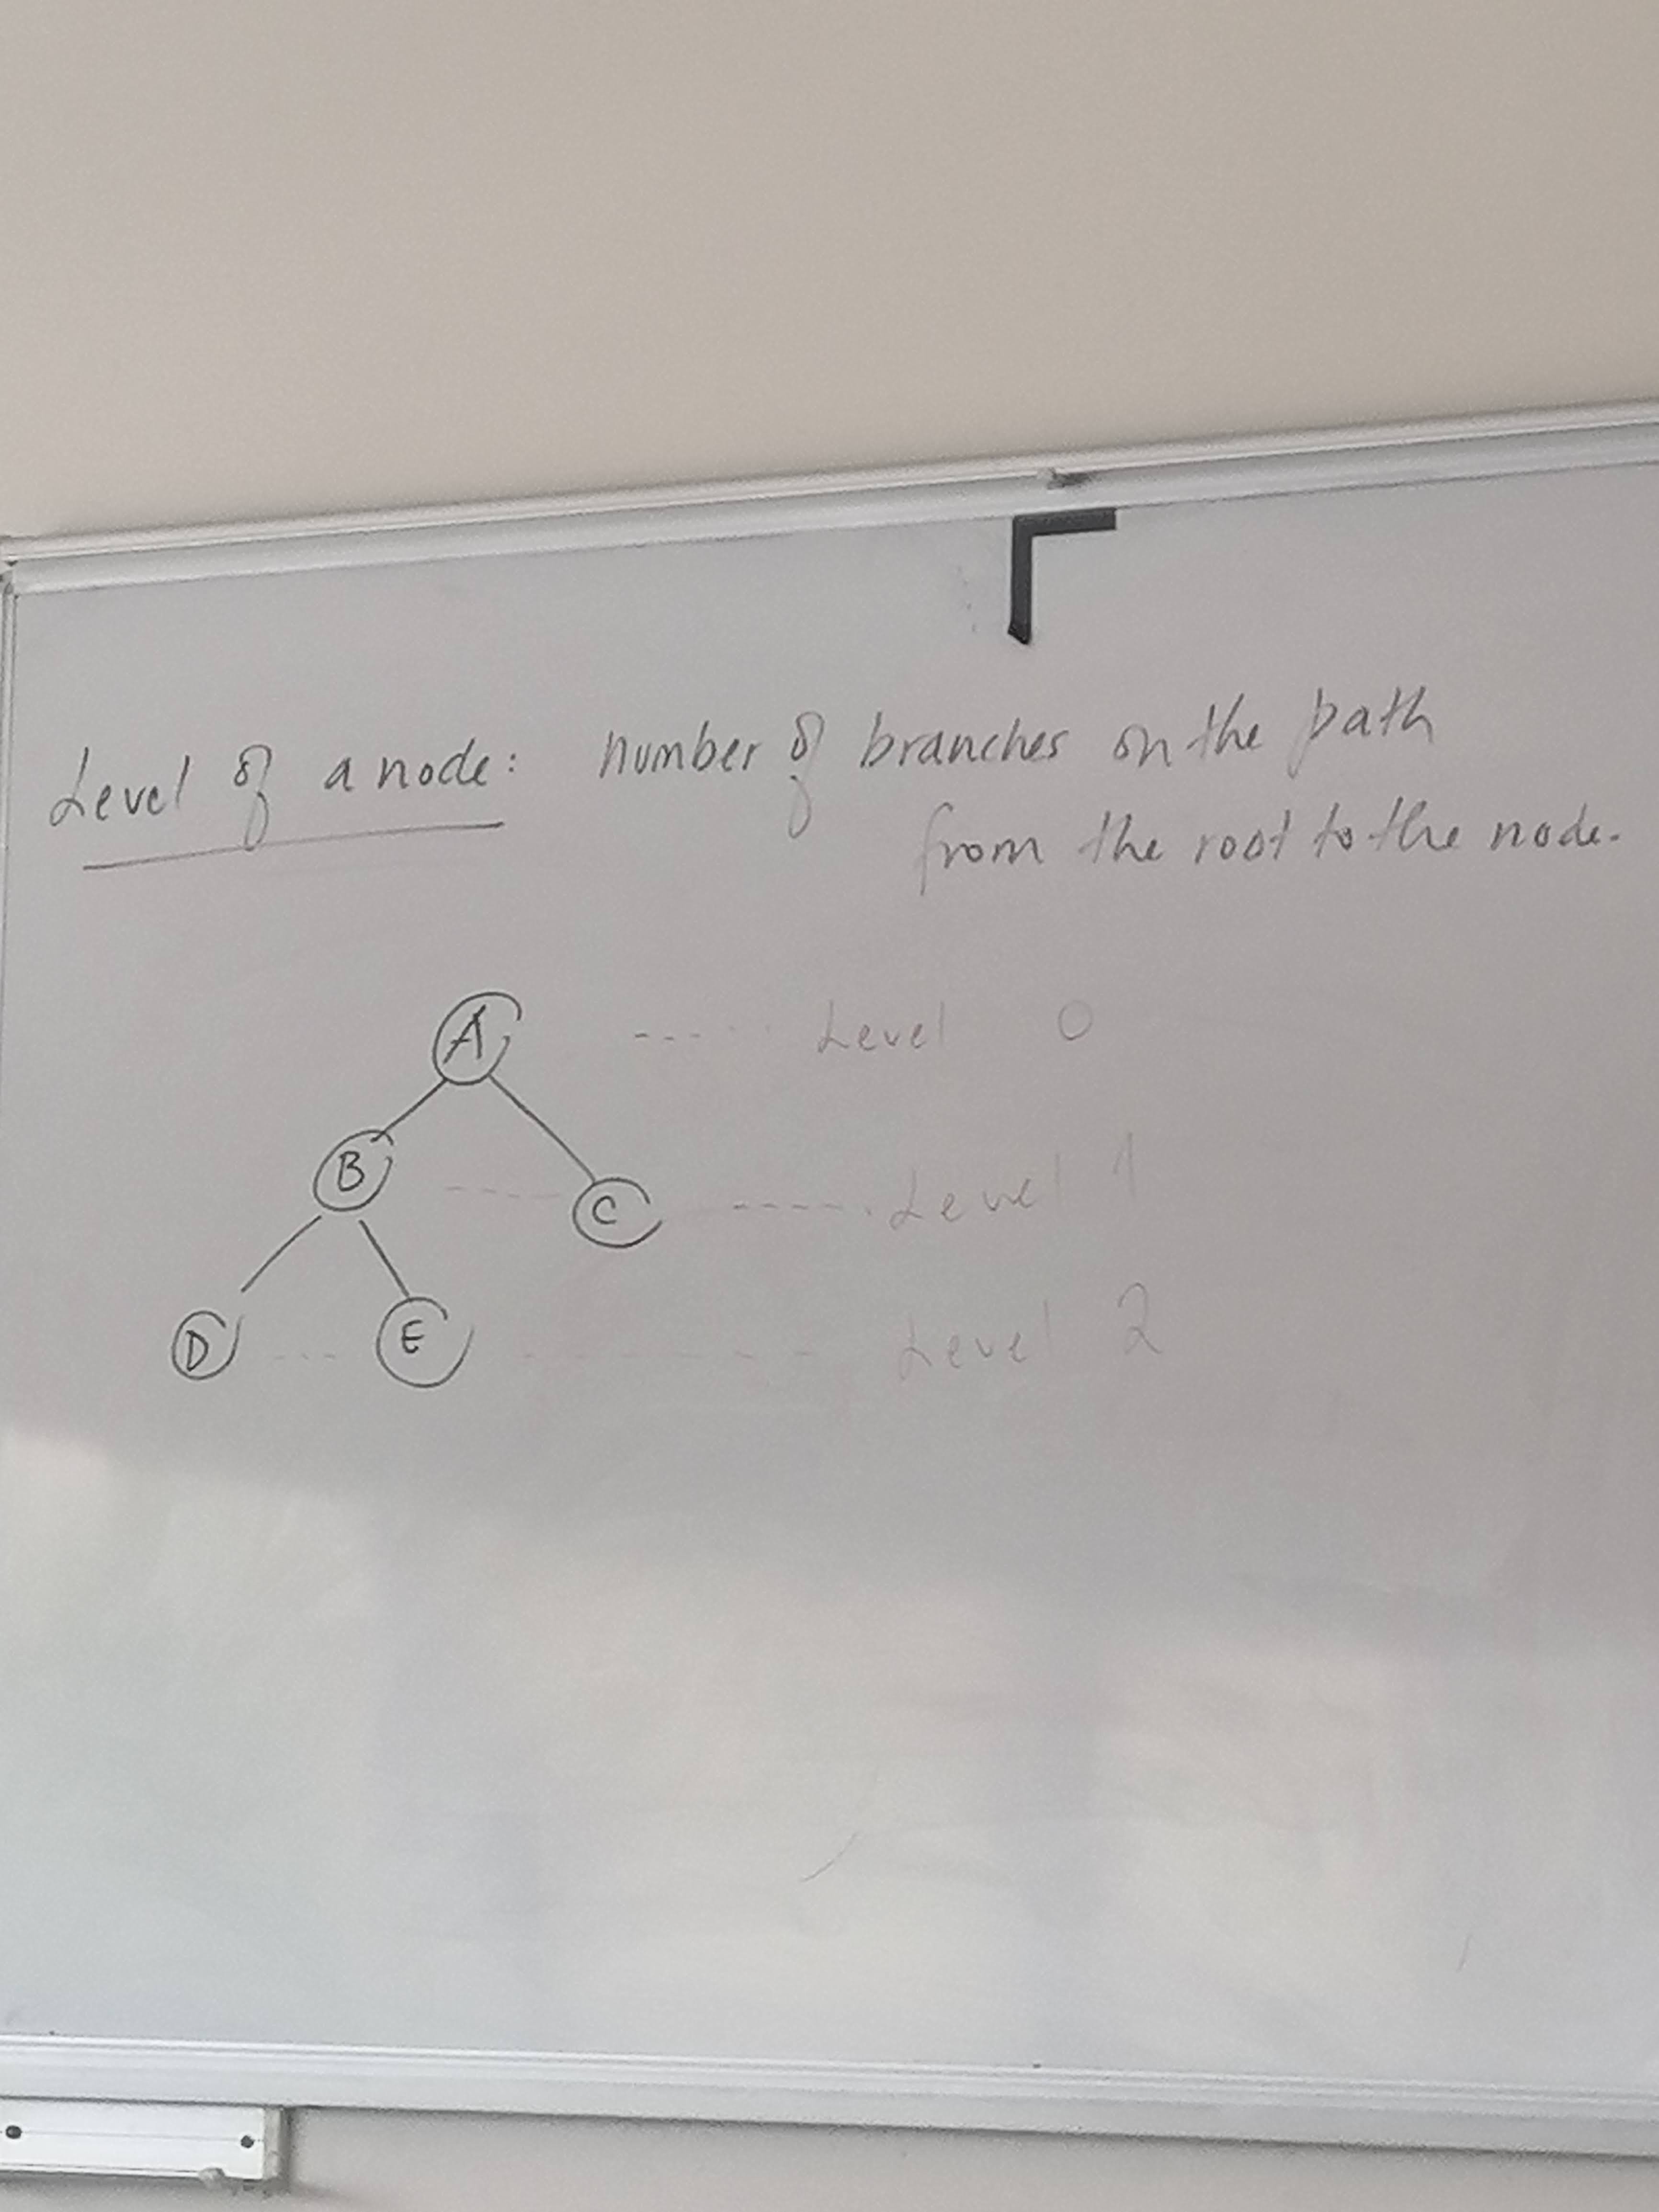 Level of a node: number of branches on the path
from the root to the node.
A ---- Level 0
B ---- C ----- Level 1
D --- E ------- Level 2